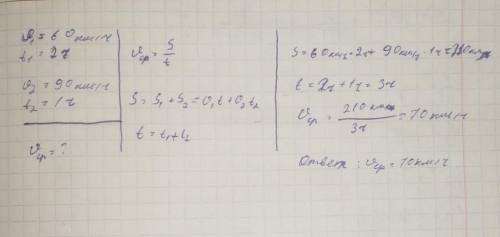 υ₁ = 60 км/ч
t₁ = 2ч
υ₂ = 90 км/ч
t₂ = 1ч
υср = ?
υср = S/t
S = S₁ + S₂ = υ₁t + υ₂t₂
t = t₁ + t₂
S = 60 км/ч · 2ч + 90 км/ч · 1ч = 210 км
t = 2ч + 1ч = 3ч
υср = 210 км / 3ч = 70 км/ч
Ответ: υср = 70 км/ч